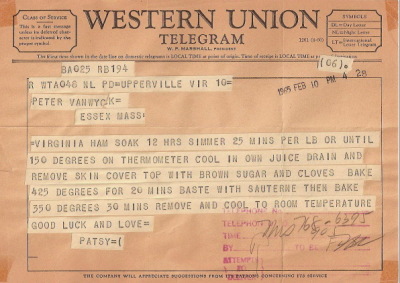 CLASS OF SERVICE
This is a fast message unless its deferred character is indicated by the proper symbol.
WESTERN UNION
TELEGRAM
W. P. MARSHALL, PRESIDENT
SYMBOLS
DL=Day Letter
NL=Night Letter
LT=International Letter Telegram
The filing time shown in the date line on domestic telegrams is LOCAL TIME at point of origin. Time of receipt is LOCAL TIME at point of destination
BA025 RB194
(06).
R WTA048 NL PD=UPPERVILLE VIR 10=
1965 FEB 10 PM 4 28
PETER VANWYCK=
ESSEX MASS=
=VIRGINIA HAM SOAK 12 HRS SIMMER 25 MINS PER LB OR UNTIL
150 DEGREES ON THERMOMETER COOL IN OWN JUICE DRAIN AND
REMOVE SKIN COVER TOP WITH BROWN SUGAR AND CLOVES BAKE
425 DEGREES FOR 20 MINS BASTE WITH SAUTERNE THEN BAKE
350 DEGREES 30 MINS REMOVE AND COOL TO ROOM TEMPERATURE
GOOD LUCK AND LOVE=
PATSY=(
TELEPHON
TIME
BY
TO BE
ATTEMPTS
768-6395
THE COMPANY WILL APPRECIATE SUGGESTIONS FROM ITS PATRONS CONCERNING ITS SERVICE